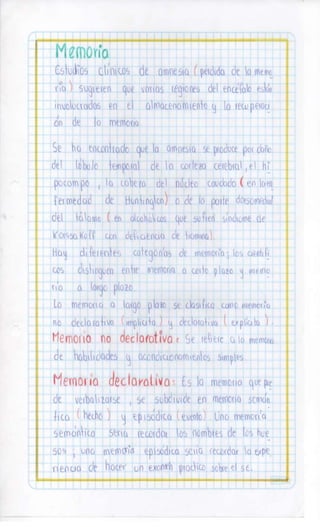 Memoria
Estudios clínicos de amnesia (perdida de la memo
ria) sugieren que varias regiones del encefalo están
involucradas en el almacenamiento y la recuperaci
ón de la memoria
Se ha encontrado que la amnesia se produce por daño
del lóbulo temporal de la corteza cerebral, el hi
pocampo, la cabeza del núcleo caudado (en la en
fermedad de Huntington) o de la parte dorsomedial
del tálamo (en alcohólicos que sufren síndrome de
Korsakoff con deficiencia de tiamina).
Hay diferentes categorías de memoria; los científi
cos distinguen entre memoria a corto plazo y memo
ria a largo plazo
La memoria a largo plazo se clasifica como memoria
no declarativa (implícita) y declarativa (explícita).
Memoria no declarativa: Se refiere a la memoria
de habilidades y acondicionamientos simples
Memoria declarativa: Es la memoria que pue
de verbalizarse, se subdivide en memoria semán
tica (hecho) y episódica (evento). Una memoria
semántica seria recordar los nombres de los hue
sos, una memoria episódica seria recordar la expe
riencia de hacer un examen práctico sobre el SC.